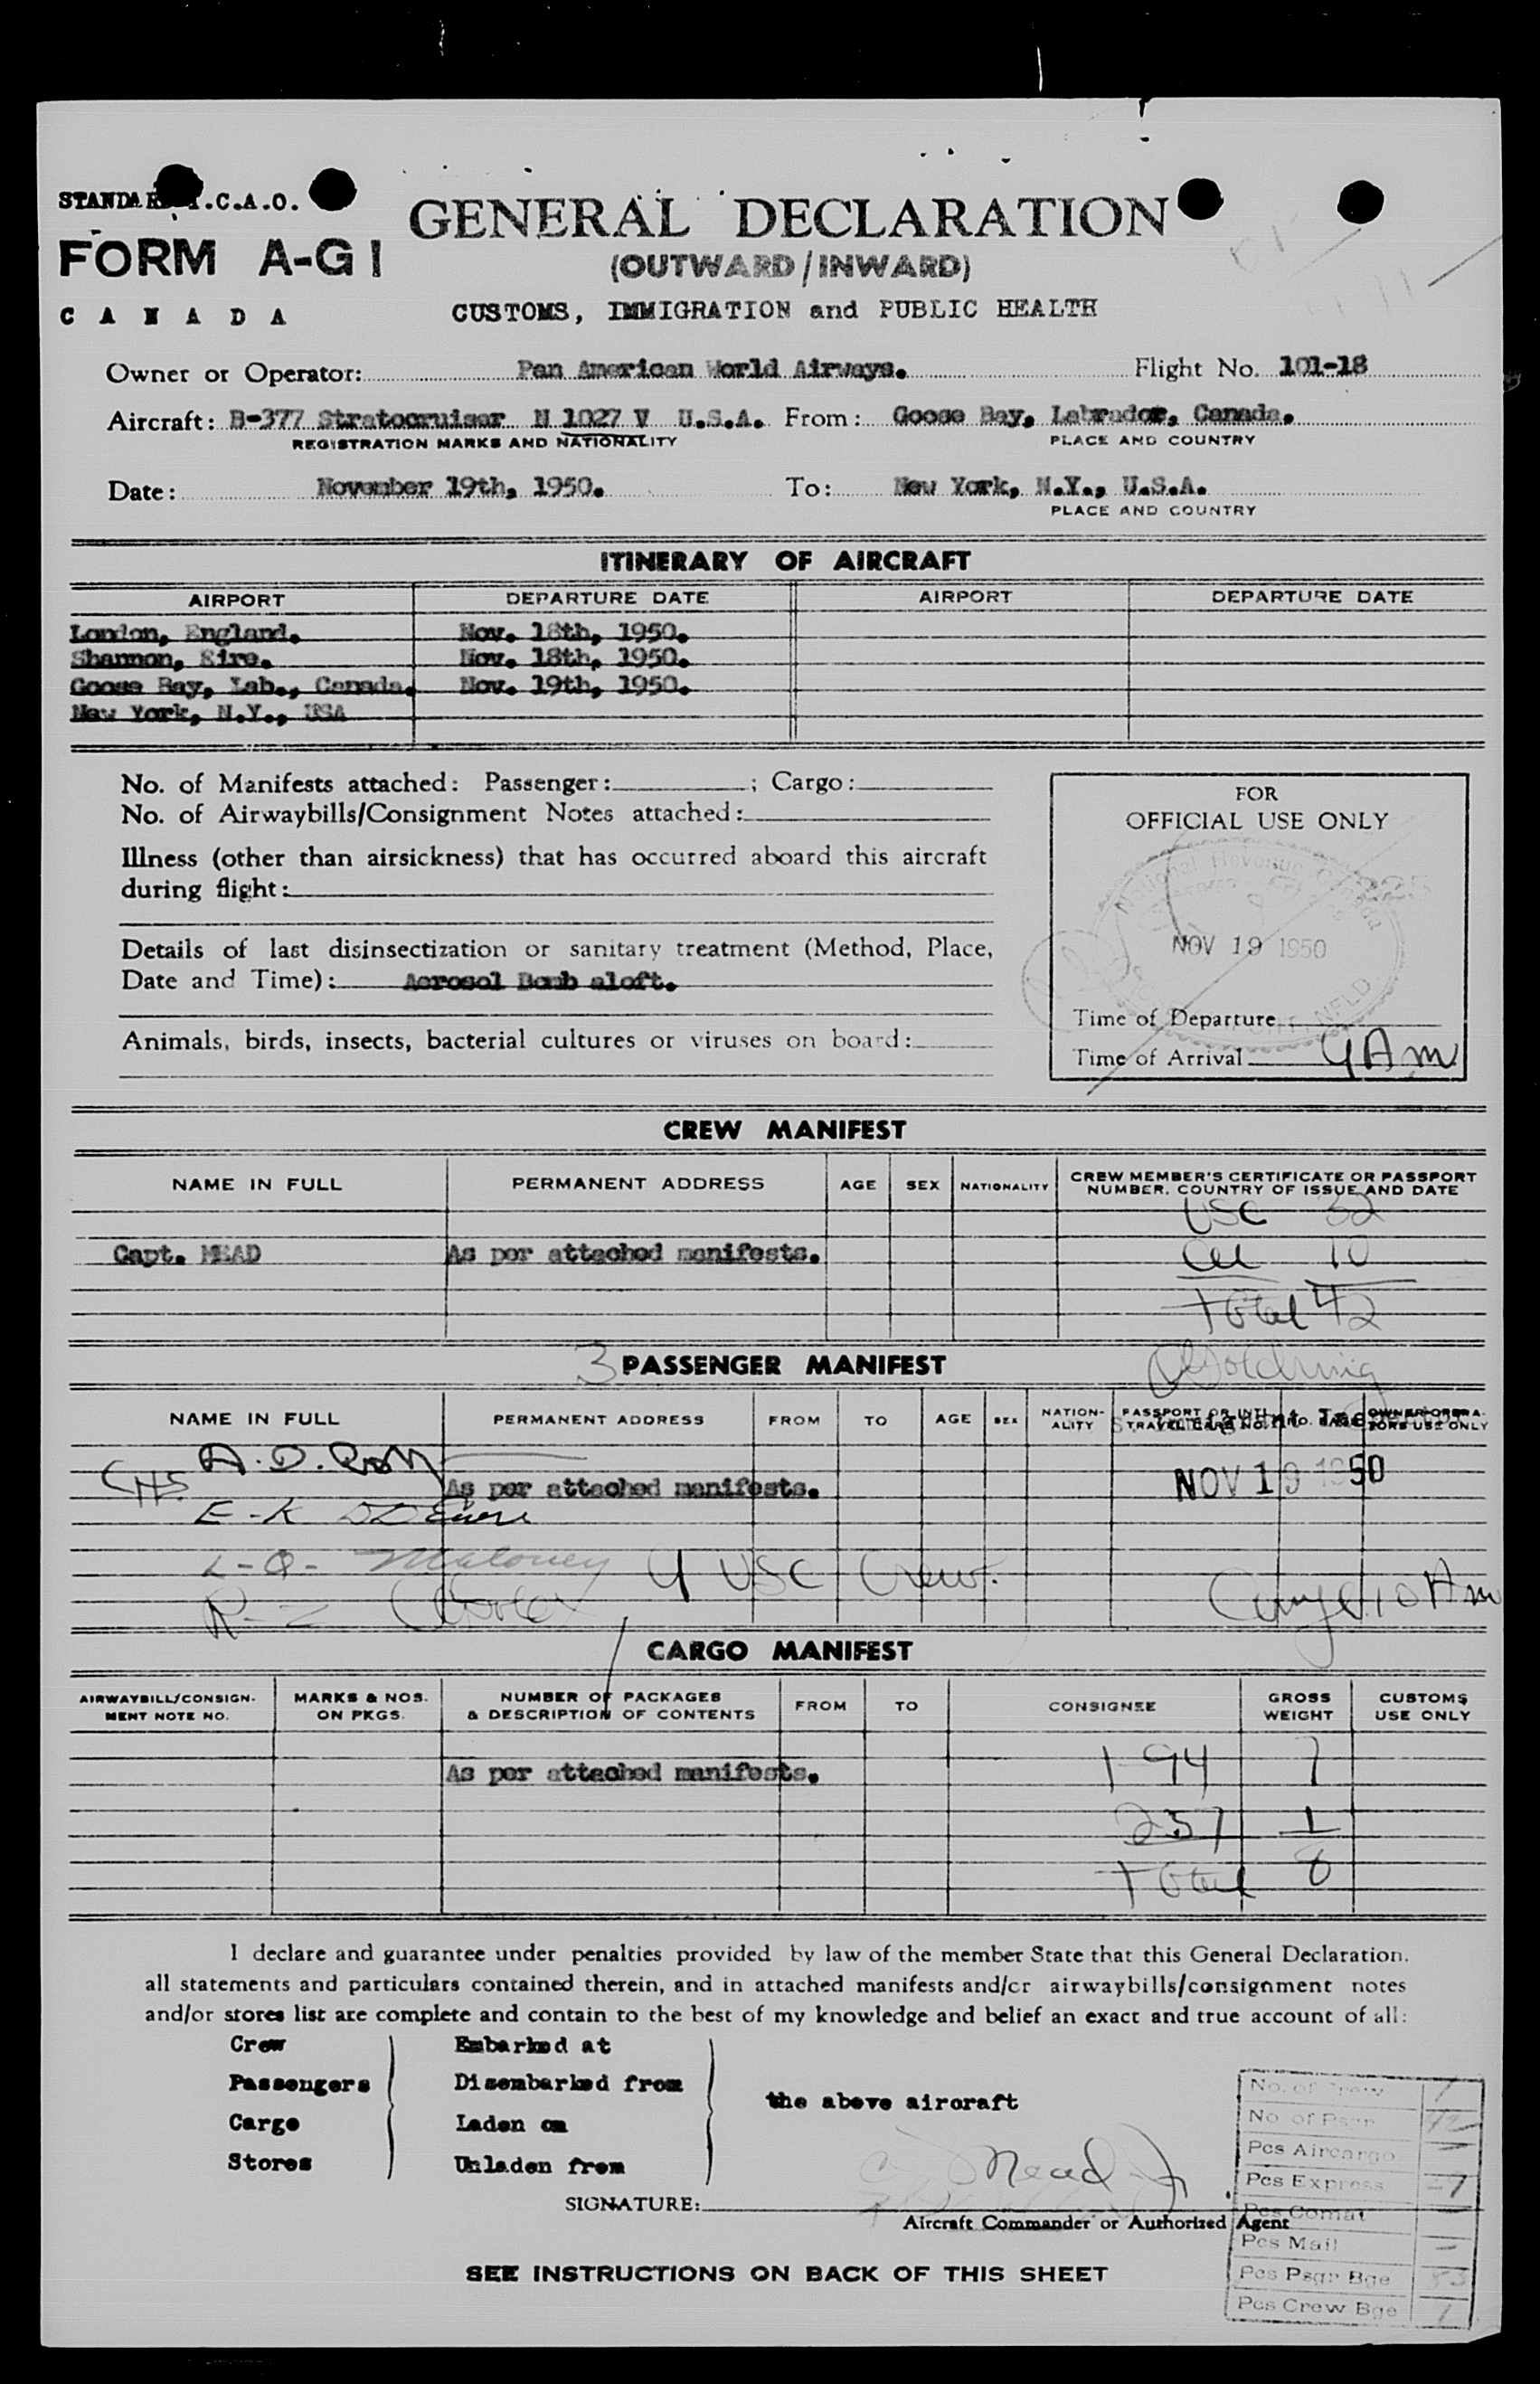 STANDARD I.C.A.O.
FORM A-G1
CANADA
GENERAL DECLARATION
(OUTWARD/INWARD)
CUSTOMS, IMMIGRATION and PUBLIC HEALTH
Owner or Operator: Pan American World Airways. Flight No. 101-18
Aircraft: B-377 Stratocruiser N 1027 V U.S.A. From: Goose Bay, Labrador, Canada.
REGISTRATION MARKS AND NATIONALITY PLACE AND COUNTRY
Date: November 19th, 1950. To: New York, N.Y., U.S.A.
PLACE AND COUNTRY
ITINERARY OF AIRCRAFT
AIRPORT DEPARTURE DATE AIRPORT DEPARTURE DATE
London, England. Nov. 18th, 1950.
Shannon, Eire. Nov. 18th, 1950.
Goose Bay, Lab., Canada. Nov. 19th, 1950.
New York, N.Y., USA
No. of Manifests attached: Passenger: ; Cargo:
No. of Airwaybills/Consignment Notes attached:
Illness (other than airsickness) that has occurred aboard this aircraft
during flight:
Details of last disinsectization or sanitary treatment (Method, Place,
Date and Time): Aerosol Bomb aloft.
Animals, birds, insects, bacterial cultures or viruses on board:
FOR
OFFICIAL USE ONLY
National Revenue
NOV 19 1950
NFLD
Time of Departure
Time of Arrival 9 Am
CREW MANIFEST
NAME IN FULL PERMANENT ADDRESS AGE SEX NATIONALITY CREW MEMBER'S CERTIFICATE OR PASSPORT
NUMBER, COUNTRY OF ISSUE AND DATE
USC 32
Capt. MEAD As per attached manifests. 10
Total 42
3 PASSENGER MANIFEST
NAME IN FULL PERMANENT ADDRESS FROM TO AGE SEX NATION-
ALITY PASSPORT OR INTL
TRAVEL CARD NO. NO. BAGS OWNER OR OPERA-
TORS USE ONLY
A. D. Ross
As per attached manifests. NOV 19 1950
E-K
L-Q- Maloney 9 USC Crew.
R-Z 10 Am
CARGO MANIFEST
AIRWAYBILL/CONSIGN-
MENT NOTE NO. MARKS & NOS.
ON PKGS. NUMBER OF PACKAGES
& DESCRIPTION OF CONTENTS FROM TO CONSIGNEE GROSS
WEIGHT CUSTOMS
USE ONLY
As per attached manifests. 1-94 7
257 1
Total 8
I declare and guarantee under penalties provided by law of the member State that this General Declaration.
all statements and particulars contained therein, and in attached manifests and/or airwaybills/consignment notes
and/or stores list are complete and contain to the best of my knowledge and belief an exact and true account of all:
Crew Embarked at
Passengers Disembarked from
the above aircraft
Cargo Laden on
Stores Unladen from
SIGNATURE: Mead Jr
Aircraft Commander or Authorized Agent
SEE INSTRUCTIONS ON BACK OF THIS SHEET
No. of Crew 1
No of Psgr 42
Pcs Aircargo -
Pcs Express -7
Pcs Comat -
Pcs Mail -
Pcs Psgr Bge 53
Pcs Crew Bge 1